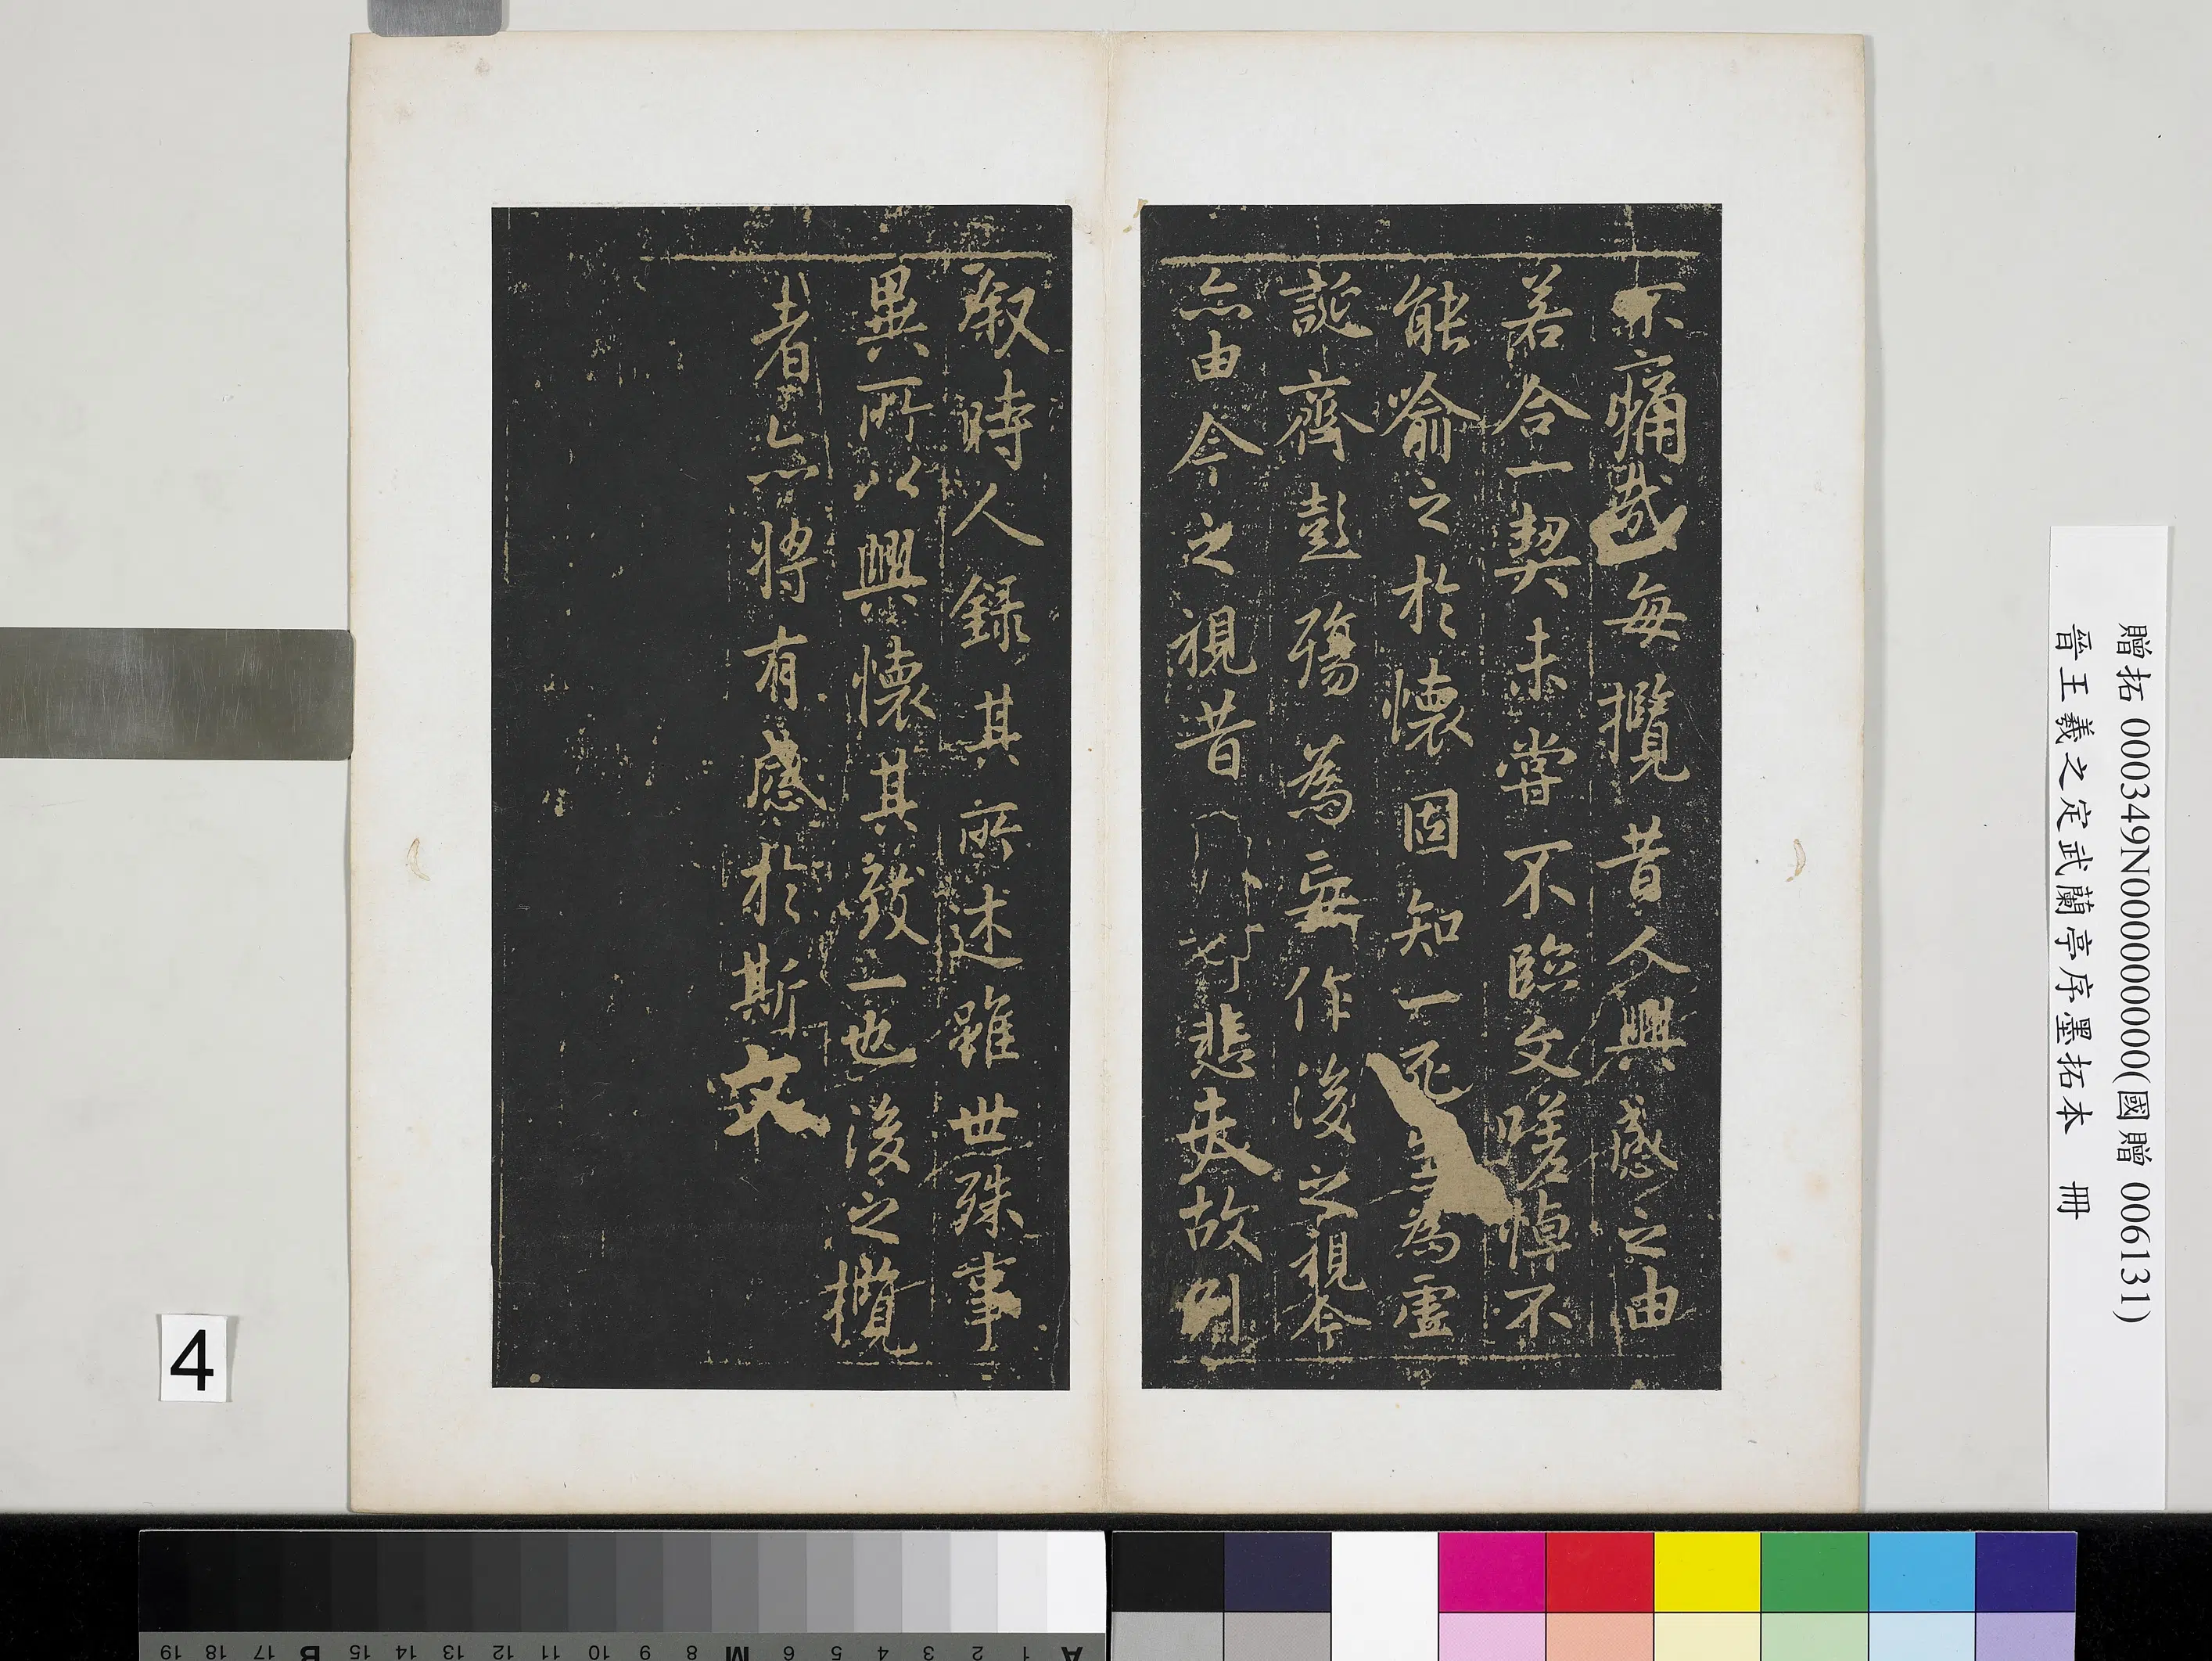 不痛哉每攬昔人興感之由
若合一契未嘗不臨文嗟悼不
能喻之於懷固知一死生為虛
誕齊彭殤為妄作後之視今
亦由今之視昔悲夫故列
叙時人錄其所述雖世殊事
異所以興懷其致一也後之攬
者亦將有感於斯文
贈拓 000349N000000000(國贈 006131)
晉王羲之定武蘭亭序墨拓本 冊
4
A 1 2 3 4 5 6 M 8 9 10 11 12 13 14 15 B 17 18 19